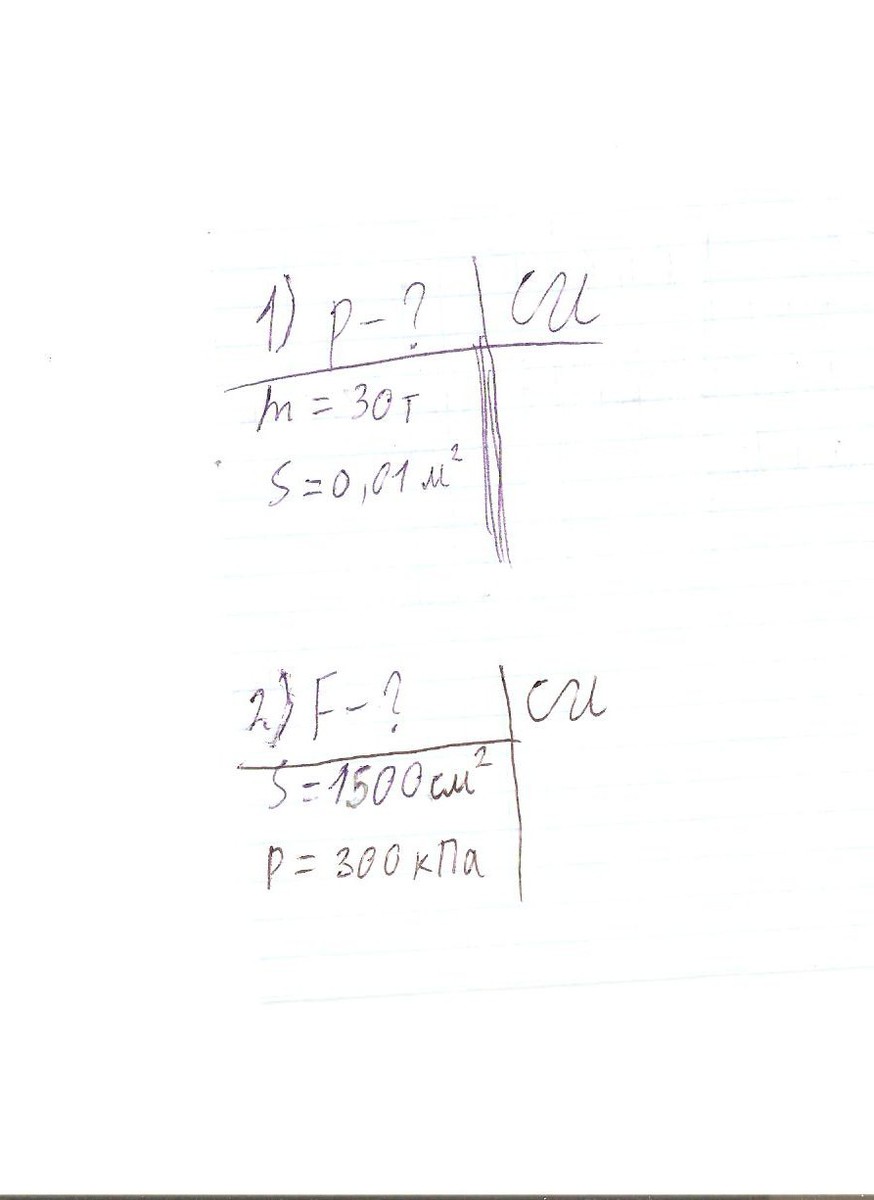 1) p-? СИ
m = 30т
S = 0,01 м²
2) F-? СИ
S = 1500 см²
p = 300 кПа